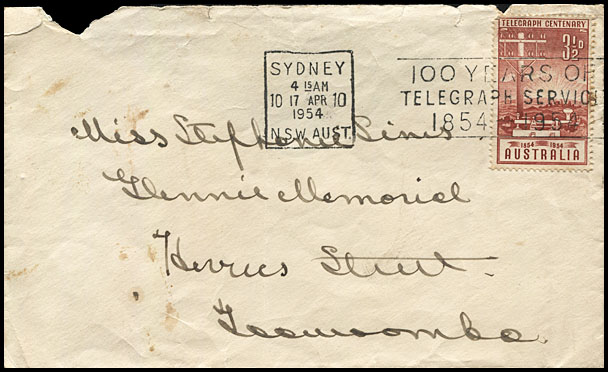 TELEGRAPH CENTENARY
3½D
SYDNEY
4 15 AM
10 17 APR 10
1954
N.S.W. AUST
100 YEARS OF
TELEGRAPH SERVICE
1854 - 1954
1854 1954
AUSTRALIA
Miss Stephanie Sines
Glennie Memorial
Herries Street.
Toowoomba.